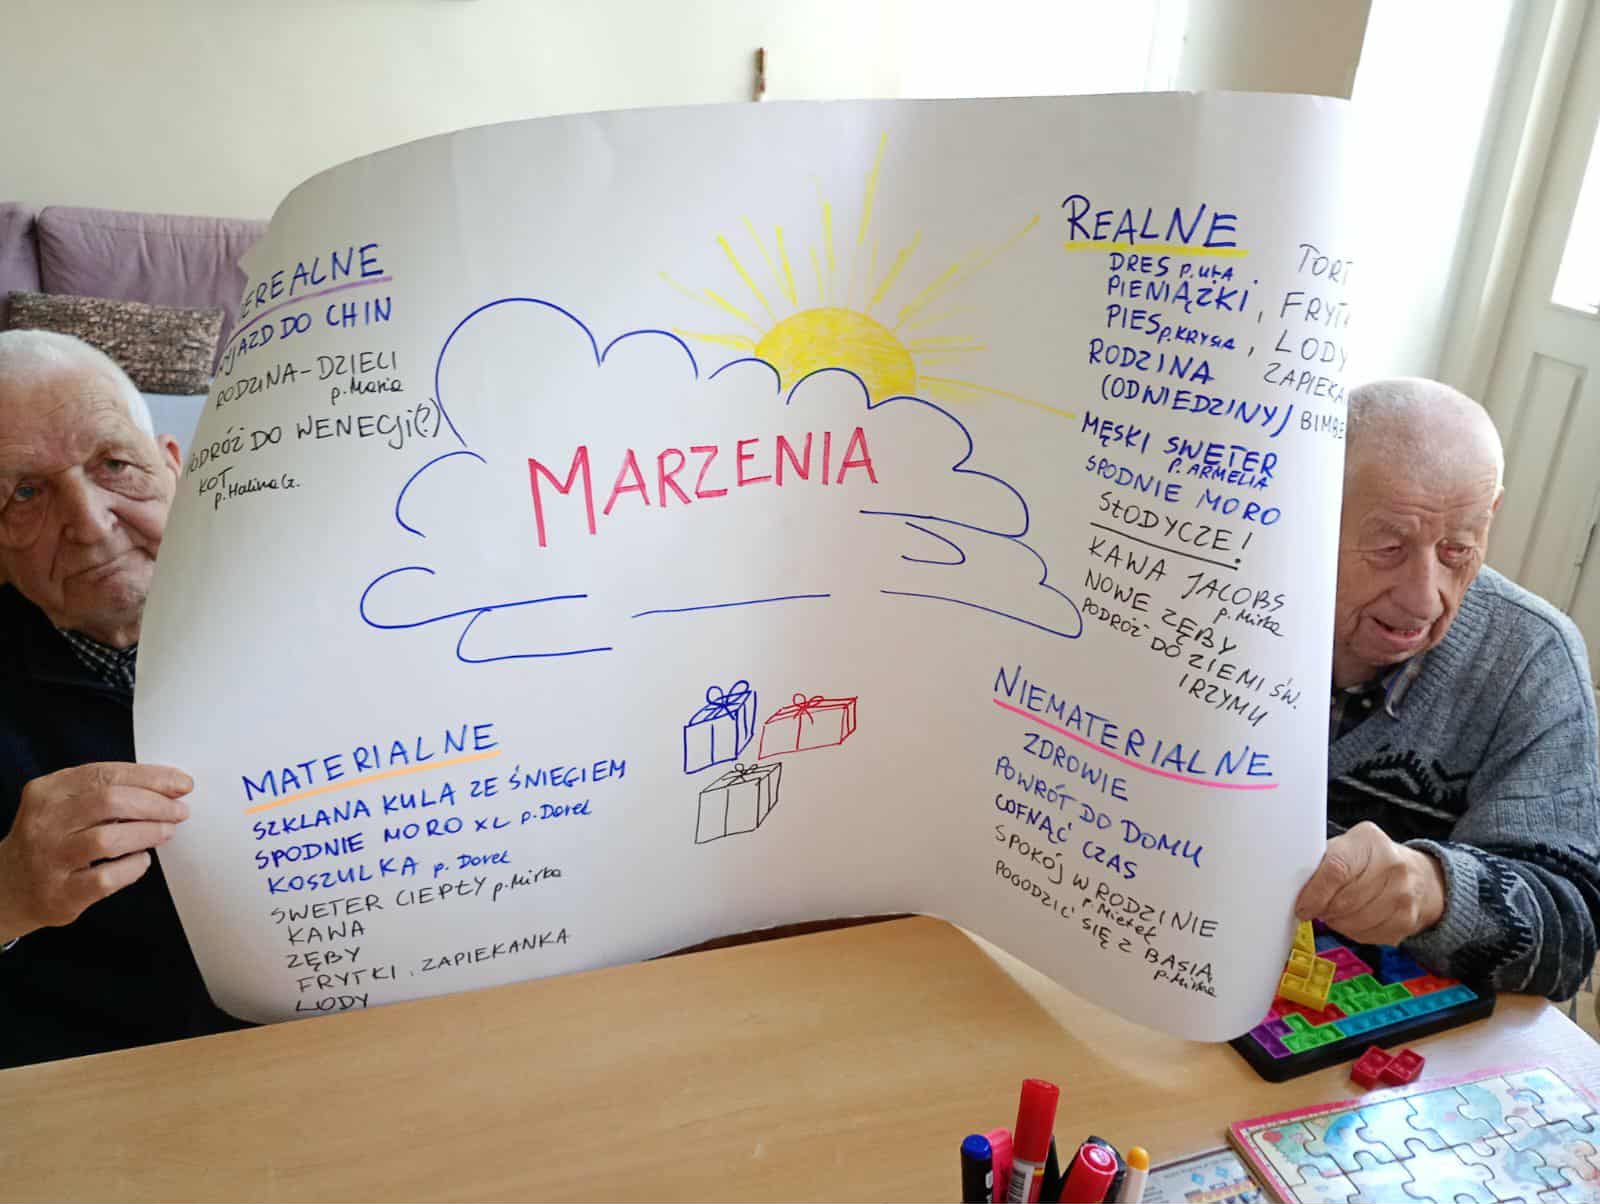 MARZENIA
EREALNE
JAZD DO CHIN
RODZINA-DZIECI
p. Maria
PODRÓŻ DO WENECJI(?)
KOT
p. Halina Cz.
REALNE
DRES p. ULA
PIENIĄŻKI,
PIES p. KRYSIA,
RODZINA
(ODWIEDZINY)
TORT
FRYTK
LODY
ZAPIEKA
BIMBE
MĘSKI SWETER
P. ARMELIA
SPODNIE MORO
SŁODYCZE!
KAWA JACOBS
p. Mirka
NOWE ZĘBY
PODRÓŻ DO ZIEMI ŚW.
I RZYMU
MATERIALNE
SZKLANA KULA ZE ŚNIEGIEM
SPODNIE MORO XL p. Darek
KOSZULKA p. Darek
SWETER CIEPŁY p. Mirka
KAWA
ZĘBY
FRYTKI, ZAPIEKANKA
LODY
NIEMATERIALNE
ZDROWIE
POWRÓT DO DOMU
COFNĄĆ CZAS
SPOKÓJ W RODZINIE
p. Mietek
POGODZIĆ SIĘ Z BASIĄ
p. Mirka